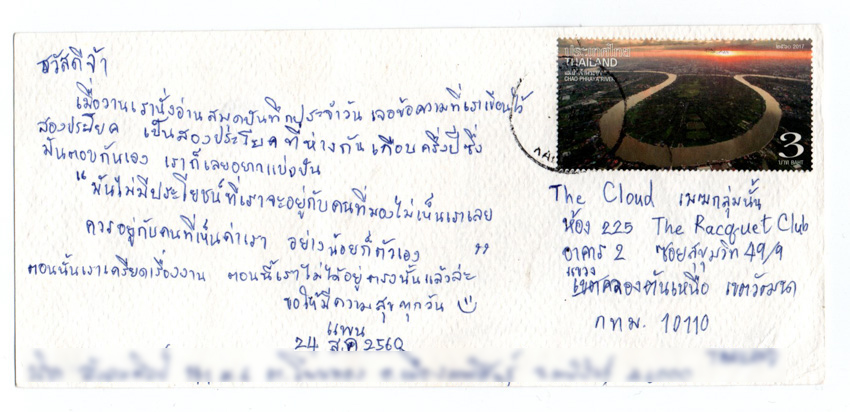 สวัสดีจ้า
เมื่อวานเรานั่งอ่านสมุดบันทึกประจำวัน เจอข้อความที่เราเขียนไว้
สองประโยค เป็นสองประโยคที่ห่างกันเกือบครึ่งปีซึ่ง
มันตอบกันเอง เราก็เลยอยากแบ่งปัน
"มันไม่มีประโยชน์ที่เราจะอยู่กับคนที่มองไม่เห็นเราเลย
ควรอยู่กับคนที่เห็นค่าเรา อย่างน้อยก็ตัวเอง"
ตอนนั้นเราเครียดเรื่องงาน ตอนนี้เราไม่ได้อยู่ตรงนั้นแล้วล่ะ
ขอให้มีความสุขทุกวัน
แพน
24 ส.ค 2560
ประเทศไทย
THAILAND
CHAO PHRAYA RIVER
๒๕๖๐ 2017
3
บาท BAHT
The Cloud เมฆกลุ่มนั้น
ห้อง 225 The Racquet Club
อาคาร 2 ซอยสุขุมวิท 49/9
แขวง
คลองตันเหนือ เขตวัฒนา
กทม. 10110